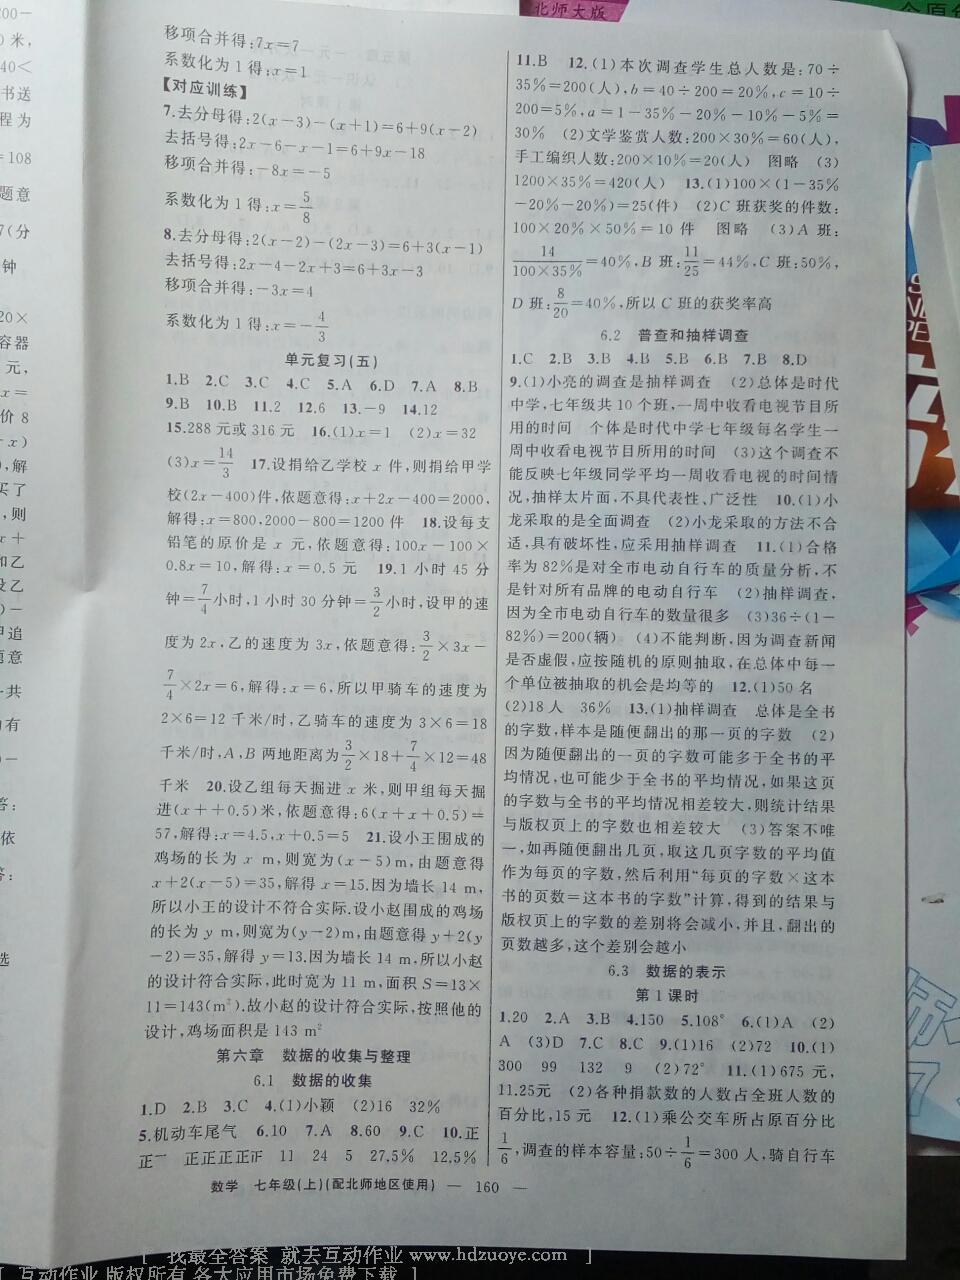 移项合并得:7x=7
系数化为1得:x=1
【对应训练】
7.去分母得:2(x-3)-(x+1)=6+9(x-2)
去括号得:2x-6-x-1=6+9x-18
移项合并得:-8x=-5
系数化为1得:x=5/8
8.去分母得:2(x-2)-(2x-3)=6+3(x-1)
去括号得:2x-4-2x+3=6+3x-3
移项合并得:-3x=4
系数化为1得:x=-4/3
单元复习(五)
1.B 2.C 3.C 4.C 5.A 6.D 7.A 8.B
9.B 10.B 11.2 12.6 13.-9 14.12
15.288元或316元 16.(1)x=1 (2)x=32
(3)x=14/3 17.设捐给乙学校x件,则捐给甲学
校(2x-400)件,依题意得:x+2x-400=2000,
解得:x=800,2000-800=1200件 18.设每支
铅笔的原价是x元,依题意得:100x-100×
0.8x=10,解得:x=0.5元 19.1小时45分
钟=7/4小时,1小时30分钟=3/2小时,设甲的速
度为2x,乙的速度为3x,依题意得:3/2×3x-
7/4×2x=6,解得:x=6,所以甲骑车的速度为
2×6=12千米/时,乙骑车的速度为3×6=18
千米/时,A,B两地距离为3/2×18+7/4×12=48
千米 20.设乙组每天掘进x米,则甲组每天掘
进(x++0.5)米,依题意得:6(x+x+0.5)=
57,解得:x=4.5,x+0.5=5 21.设小王围成的
鸡场的长为x m,则宽为(x-5)m,由题意得
x+2(x-5)=35,解得x=15.因为墙长14 m,
所以小王的设计不符合实际.设小赵围成的鸡场
的长为y m,则宽为(y-2)m,由题意得y+2(y
-2)=35,解得y=13.因为墙长14 m,所以小赵
的设计符合实际,此时宽为11 m,面积S=13×
11=143(m²).故小赵的设计符合实际,按照他的
设计,鸡场面积是143 m²
第六章 数据的收集与整理
6.1 数据的收集
1.D 2.B 3.C 4.(1)小颖 (2)16 32%
5.机动车尾气 6.10 7.A 8.60 9.C 10.正
正 正正正正 11 24 5 27.5% 12.5%
数学 七年级(上)(配北师地区使用) — 160 —
11.B 12.(1)本次调查学生总人数是:70÷
35%=200(人),b=40÷200=20%,c=10÷
200=5%,a=1-35%-20%-10%-5%=
30% (2)文学鉴赏人数:200×30%=60(人),
手工编织人数:200×10%=20(人) 图略 (3)
1200×35%=420(人) 13.(1)100×(1-35%
-20%-20%)=25(件) (2)C班获奖的件数:
100×20%×50%=10件 图略 (3)A班:
14/(100×35%)=40%,B班:11/25=44%,C班:50%,
D班:8/20=40%,所以C班的获奖率高
6.2 普查和抽样调查
1.C 2.B 3.B 4.B 5.B 6.B 7.B 8.D
9.(1)小亮的调查是抽样调查 (2)总体是时代
中学,七年级共10个班,一周中收看电视节目所
用的时间 个体是时代中学七年级每名学生一
周中收看电视节目所用的时间 (3)这个调查不
能反映七年级同学平均一周收看电视的时间情
况,抽样太片面,不具代表性、广泛性 10.(1)小
龙采取的是全面调查 (2)小龙采取的方法不合
适,具有破坏性,应采用抽样调查 11.(1)合格
率为82%是对全市电动自行车的质量分析,不
是针对所有品牌的电动自行车 (2)抽样调查,
因为全市电动自行车的数量很多 (3)36÷(1-
82%)=200(辆) (4)不能判断,因为调查新闻
是否虚假,应按随机的原则抽取,在总体中每一
个单位被抽取的机会是均等的 12.(1)50名
(2)18人 36% 13.(1)抽样调查 总体是全书
的字数,样本是随便翻出的那一页的字数 (2)
因为随便翻出的一页的字数可能多于全书的平
均情况,也可能少于全书的平均情况,如果这页
的字数与全书的平均情况相差较大,则统计结果
与版权页上的字数也相差较大 (3)答案不唯
一,如再随便翻出几页,取这几页字数的平均值
作为每页的字数,然后利用“每页的字数×这本
书的页数=这本书的字数”计算,得到的结果与
版权页上的字数的差别将会减小,并且,翻出的
页数越多,这个差别会越小
6.3 数据的表示
第1课时
1.20 2.A 3.B 4.150 5.108° 6.(1)A (2)
A (3)D 7.C 8.C 9.(1)16 (2)72 10.(1)
300 99 132 9 (2)72° 11.(1)675元,
11.25元 (2)各种捐款数的人数占全班人数的
百分比,15元 12.(1)乘公交车所占原百分比
1/6,调查的样本容量:50÷1/6=300人,骑自行车
北师大版
[ 找最全答案 就去互动作业 www.hdzuoye.com ]
[ 互动作业 版权所有 各大应用市场免费下载 ]